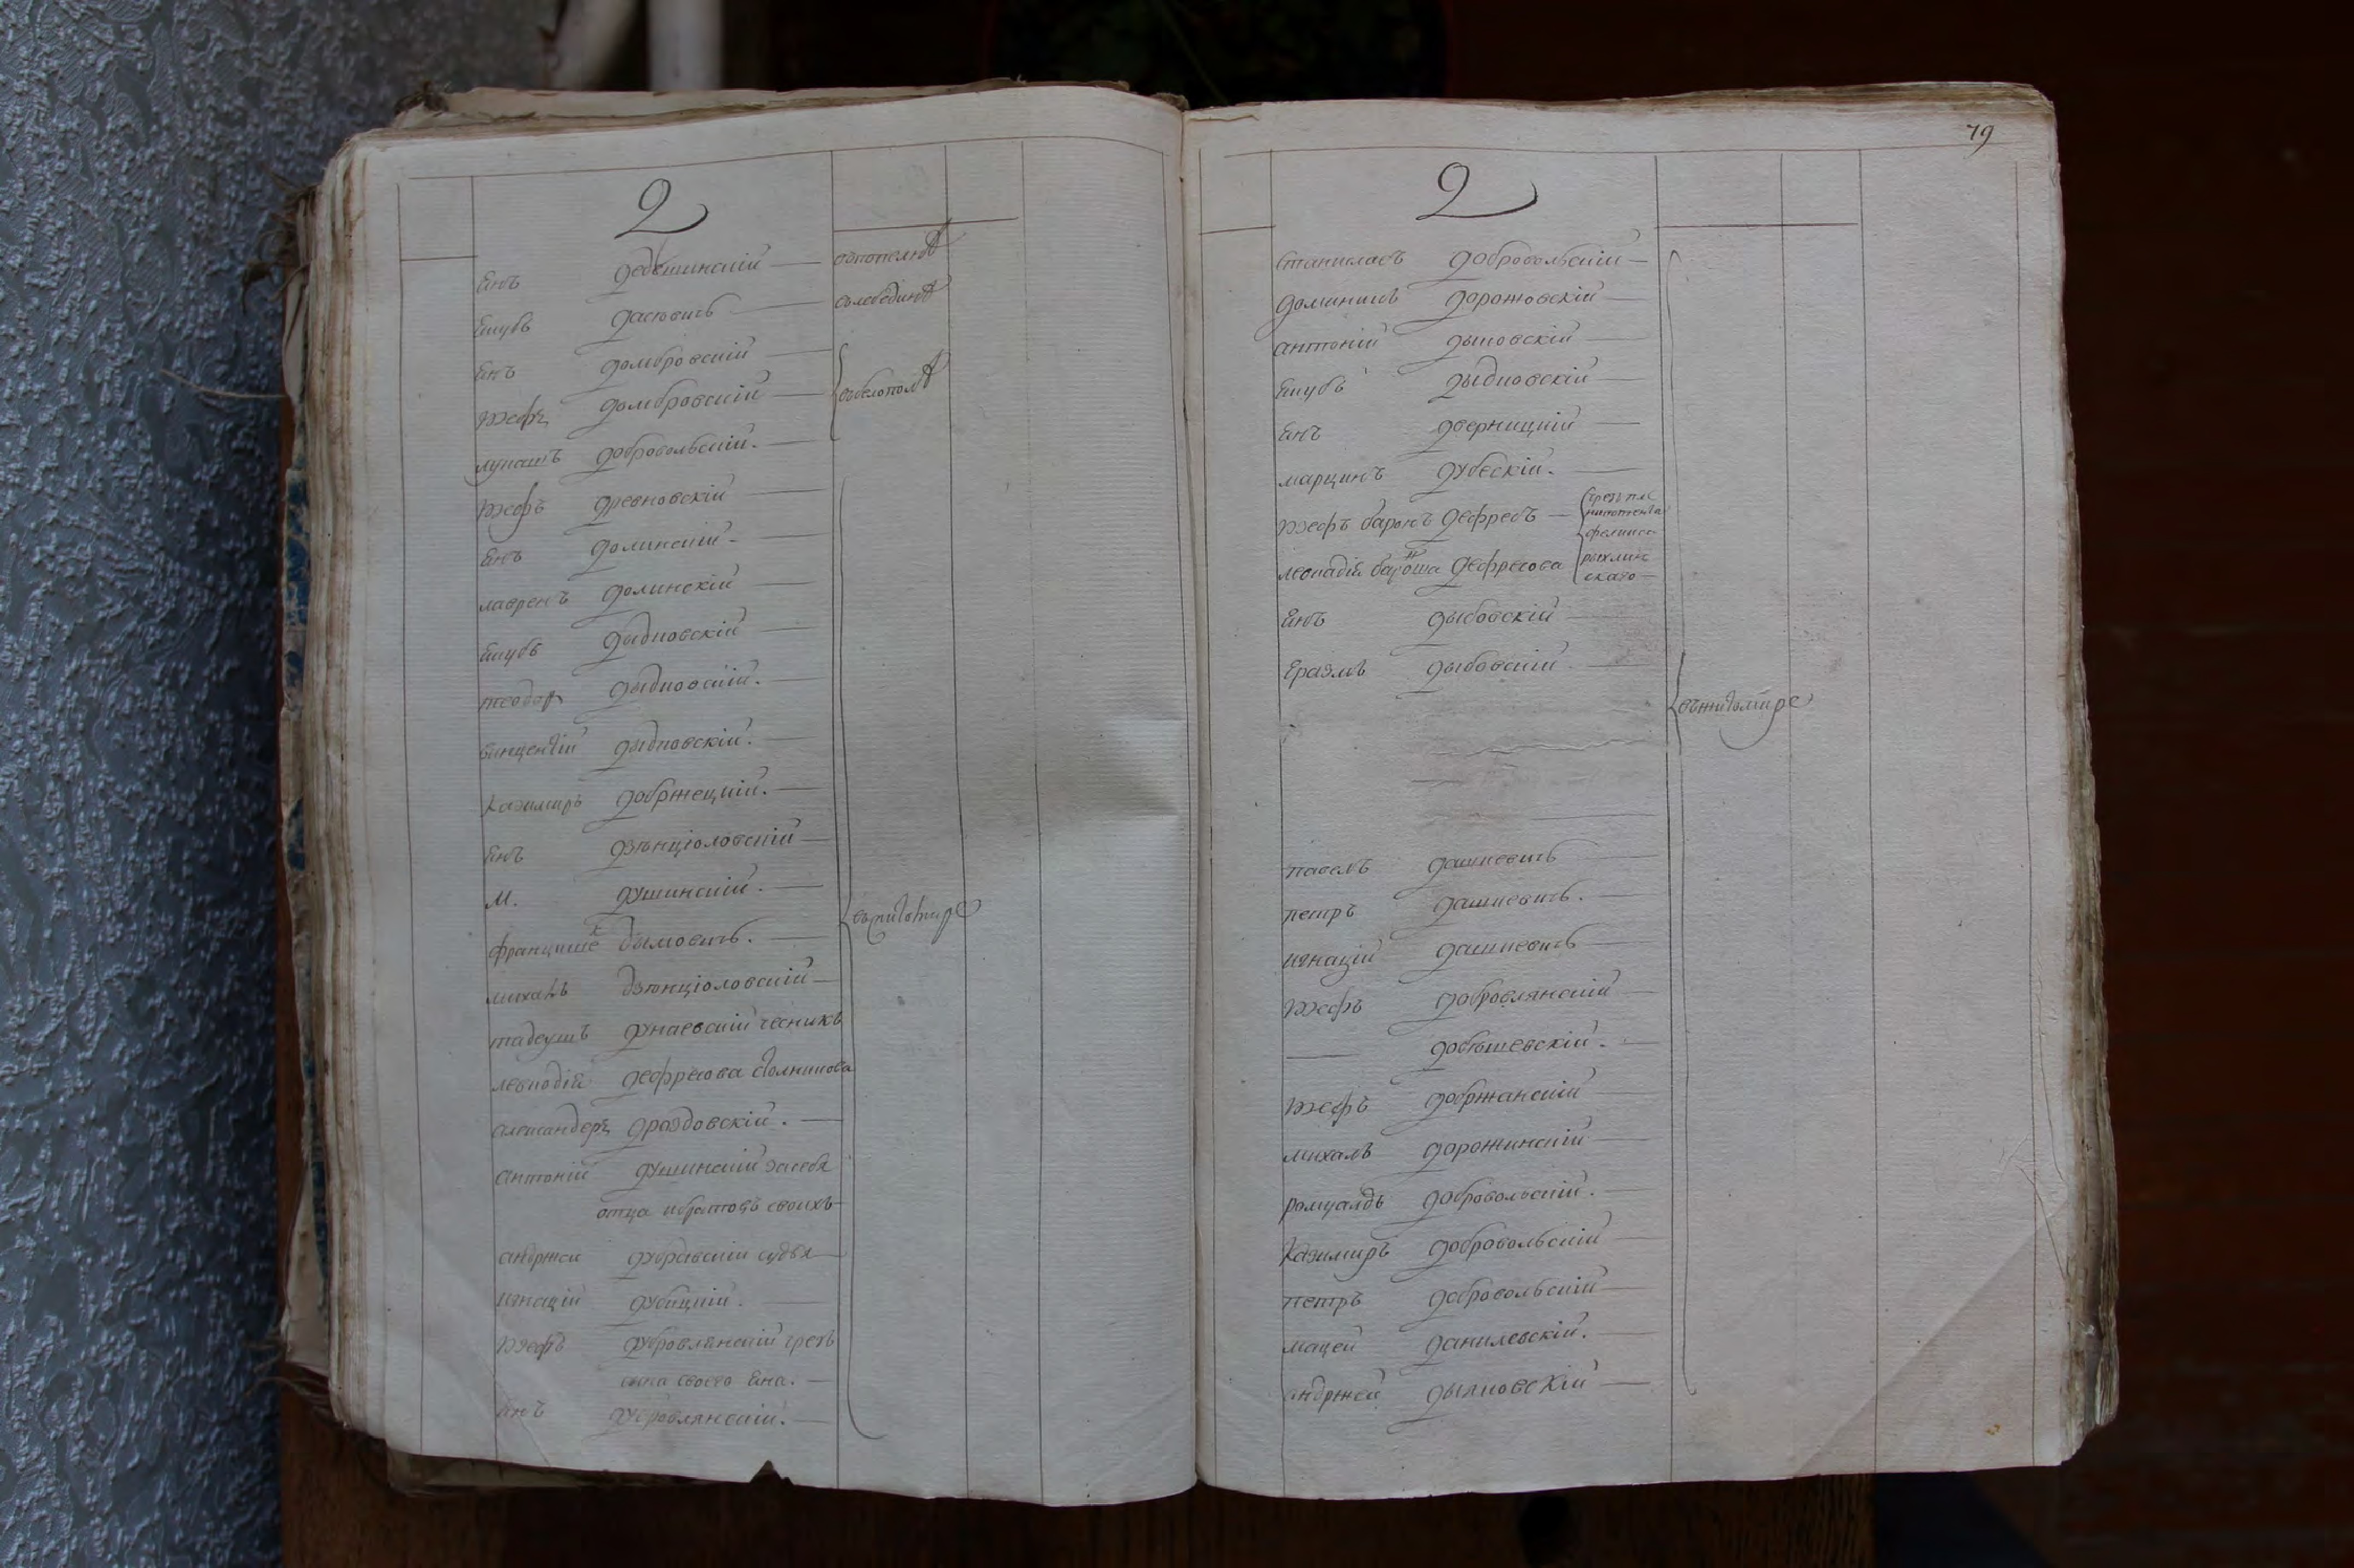 Д
Янъ Дебешинскій — вопопелнѣ
Якубъ Дасювичь — волебединѣ
Янъ Домбровскій —
Южефъ Домбровскій — вбелополѣ
лукашъ Добровольскій. —
Южефъ Древновскій —
Янъ Долинскій —
лавренъ Долинскій —
Якубъ Дыдковскій —
теодоръ Дыдковскій. —
винцентій Дыдковскій. —
Казимиръ Добржецкій. —
Янъ Дзѣнціоловскій —
М. Душинскій. —
францишекъ Дымовичь. —
михалъ Дзюнціоловскій —
въжитомире
тадеушъ Дунаевскій чесникъ
леокадія Дефресова столникова
александеръ Дроздовскій. —
антоній Душинскій засебя
отца ибратовъ своихъ —
андржеи Дубравскій судья —
игнацій Дубицкій. —
Южефъ Дубровлянскій чрезъ
сына своего Яна. —
Янъ Дубровлянскій. —
79
Д
Станиславъ Добровольскій —
доминикъ Дорожовскій —
антоній Дыновскій —
Якубъ Дыдковскій —
Янъ Дверницкій —
марцинъ Дубескій. —
Южефъ баронъ Дефресъ — чрезъ пле
нипотента
феликса
рыхлин
скаго —
леокадія баронова Дефресова
Янъ Дыбовскій —
Еразмъ Дыбовскій —
въжитомире
павелъ Дашкевичь —
петръ Дашкевичь. —
игнацій Дашкевичь —
Южефъ Добровлянскій —
— Добѣшевскій. —
Южефъ Добржанскій —
михалъ Дорожинскій —
ромуалдъ Добровольскій. —
Казимиръ Добровольскій —
петръ Добровольскій —
мацей Данилевскій. —
андржей Дылновскій —